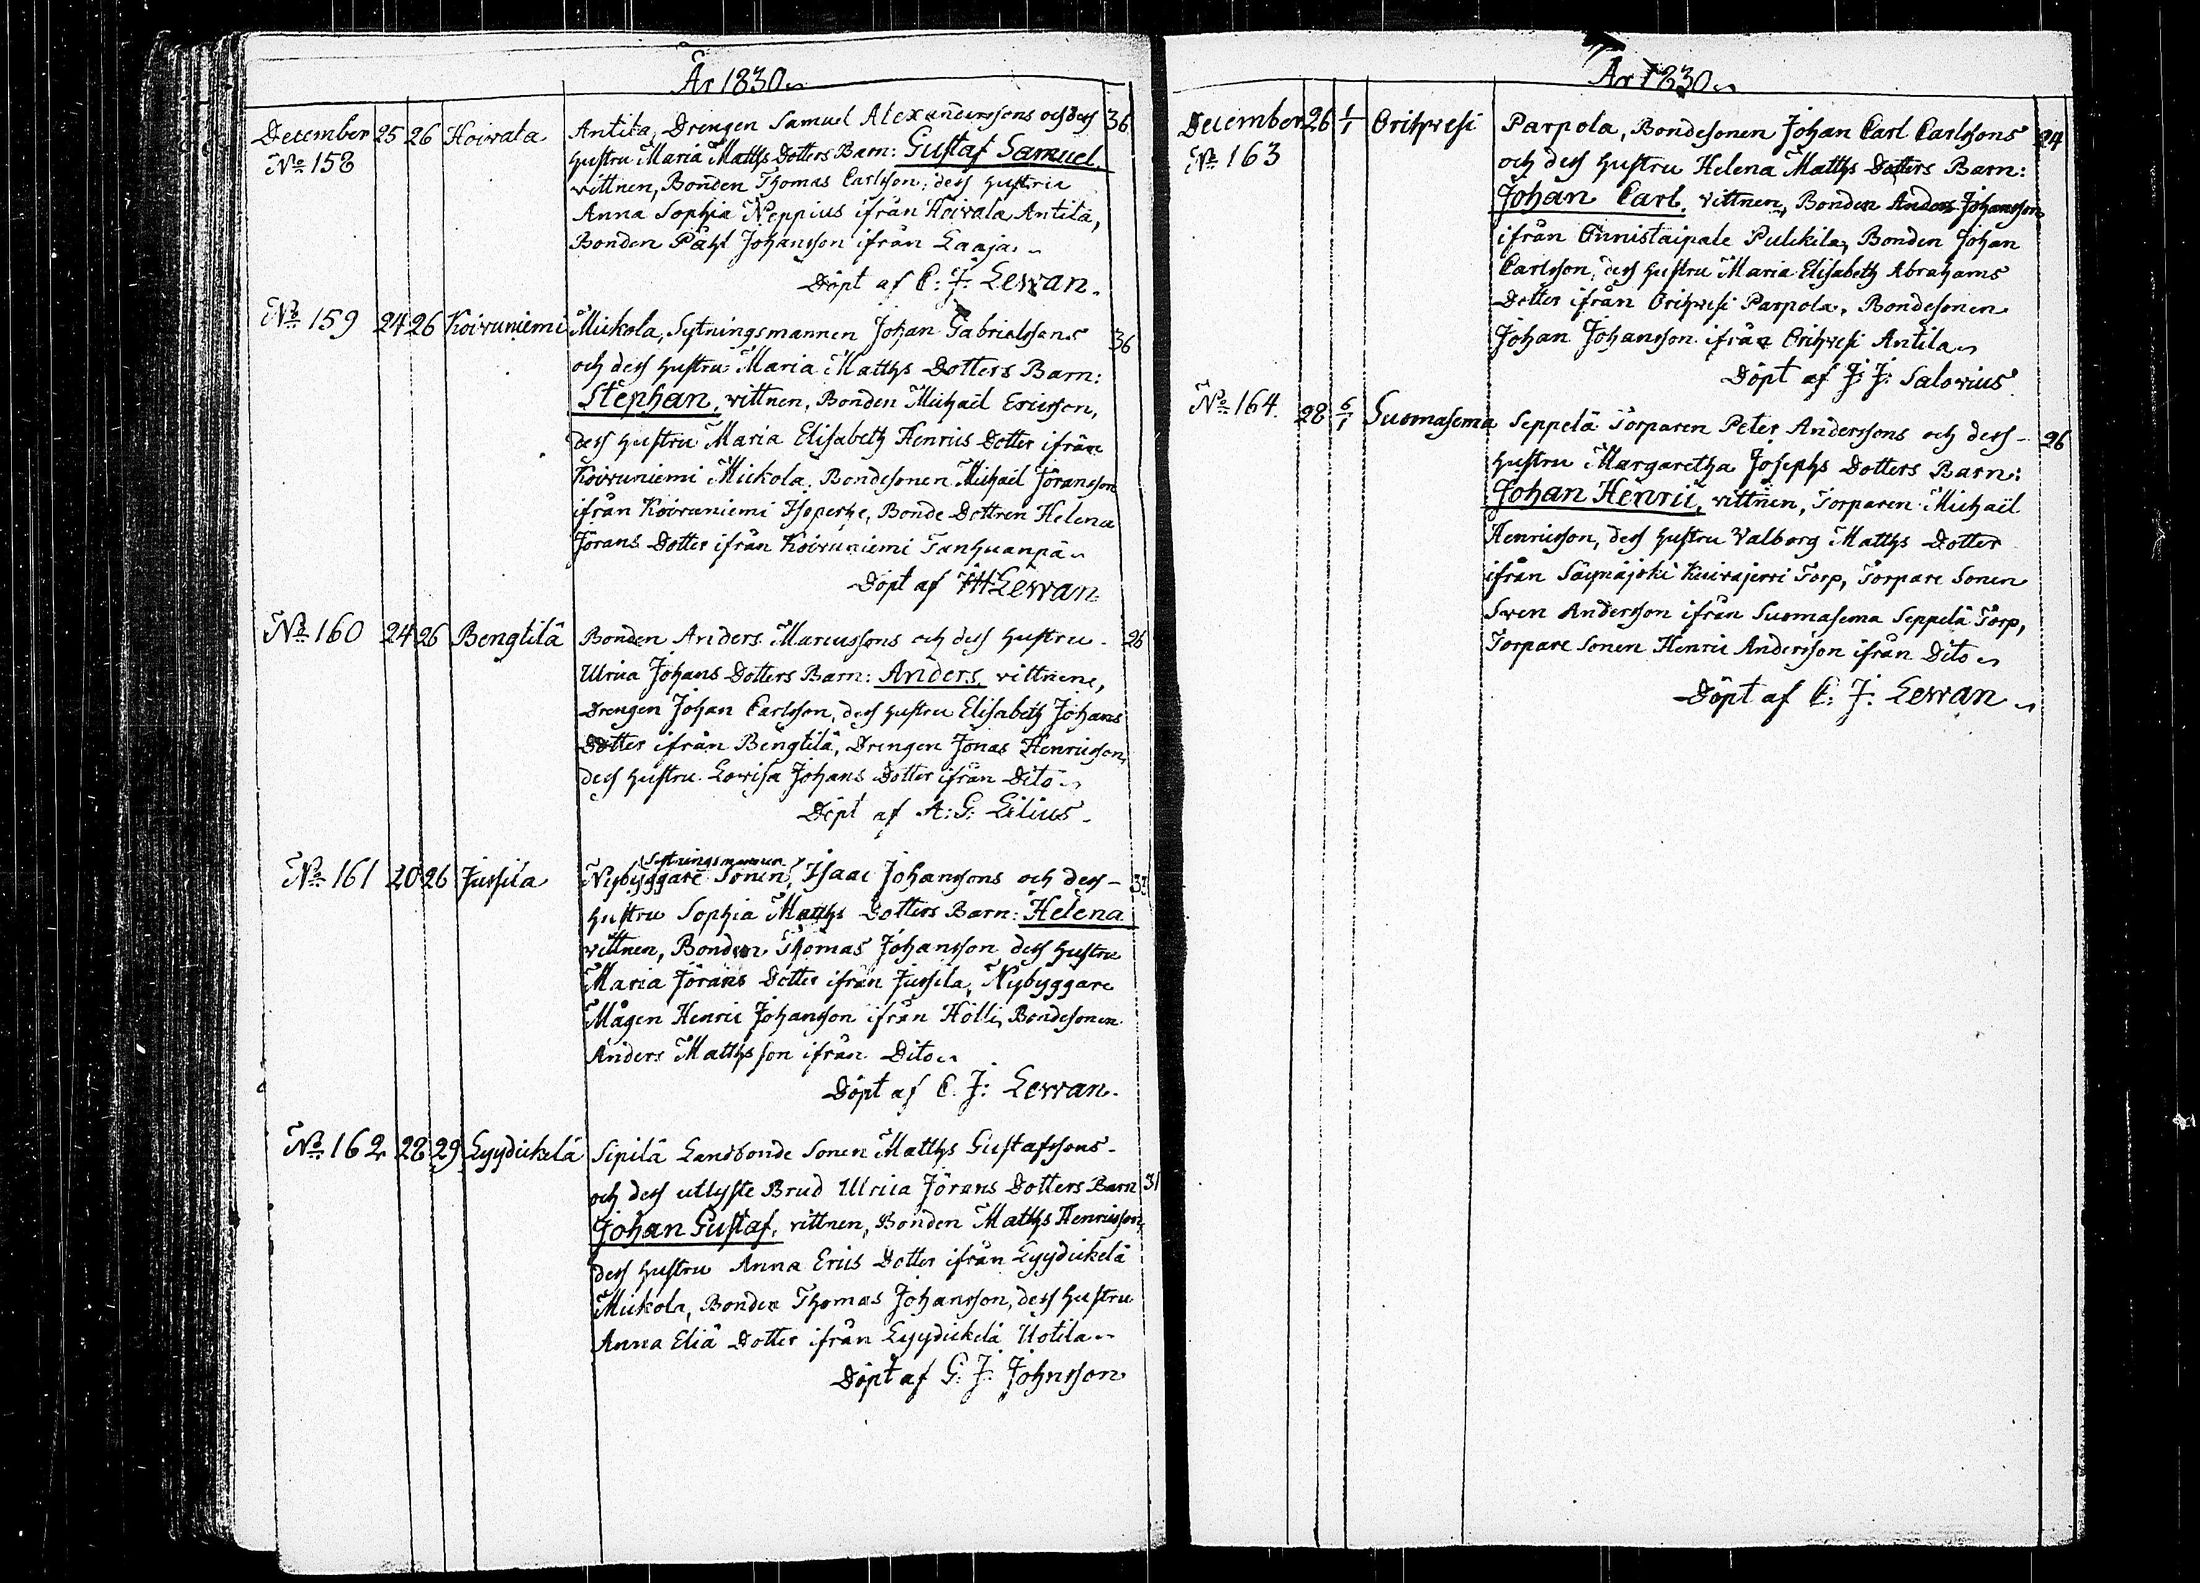 År 1830
December 25 26 Hoivala Antila, Drengen Samuel Alexanderssons och dess 36
No 158 hustru Maria Matths Dotters Barn: Gustaf Samuel.
vittnen, Bonden Thomas Carlsson, dess hustru
Anna Sophia Neppius ifrån Hoivala Antila,
Bonden Påhl Johansson ifrån Laaja.
Döpt af C: J: Lewan.
No 159 24 26 Koivuniemi Mickola, Sytningsmannen Johan Gabrielssons 36
och dess hustru Maria Matths Dotters Barn:
Stephan, vittnen, Bonden Michaël Ericsson,
dess hustru Maria Elisabeth Henrics Dotter ifrån
Koivuniemi Mickola, Bondesonen Michaël Jöransson
ifrån Koivuniemi, Bonde Dottren Helena
Jörans Dotter ifrån Koivuniemi Tanhuanpä
Döpt af Lewan
No 160 24 26 Bengtilä Bonden Anders Marcussons och dess hustru 26
Ulrica Johans Dotters Barn: Anders, vittnene,
Drengen Johan Carlsson, dess hustru Elisabeth Johans
Dotter ifrån Bengtilä, Drengen Jonas Henricsson,
dess hustru Lovisa Johans Dotter ifrån Dito
Döpt af A: G: Lilius
Sytningsmannen
No 161 20 26 Jussila Nybyggare Sonen, Isaac Johanssons och dess 33
hustru Sophia Matths Dotters Barn: Helena
vittnen, Bonden Thomas Johansson dess hustru
Maria Jörans Dotter ifrån Jussila, Nybyggare
Mågen Henric Johansson ifrån Hölli, Bondesonen
Anders Matthsson ifrån Dito
Döpt af C. J: Lewan.
No 162 28 29 Lyydickelä Sipilä Landbonde Sonen Matths Gustafssons
och dess utlyste Brud Ulrica Jörans Dotters Barn 31
Johan Gustaf, vittnen, Bonden Matths Henricsson,
dess hustru Anna Erics Dotter ifrån Lyydickelä
Mickola, Bonden Thomas Johansson, dess hustru
Anna Eliä Dotter ifrån Lyydickelä Uotila
Döpt af G: J: Johnsson
År 1830
December 26 1/1 Orihvesi Parpola, Bondesonen Johan Carl Carlssons 24
No 163 och dess hustru Helena Matths Dotters Barn:
Johan Carl, vittnen, Bonden Anders Johansson
ifrån Onnistaipale Pulckila, Bonden Johan
Carlsson, dess hustru Maria Elisabeth Abrahams
Dotter ifrån Orihvesi Parpola, Bondesonen
Johan Johansson ifrån Orihvesi Antila
Döpt af J: J: Salovius
No 164. 28 6/1 Suomasema Seppelä Torparen Peter Anderssons och dess 26
hustru Margaretha Josephs Dotters Barn:
Johan Henric, vittnen, Torparen Michaël
Henricsson, dess hustru Valborg Matths Dotter
ifrån Säynäjoki Kuivajervi Torp, Torpare Sonen
Sven Andersson ifrån Suomasema Seppelä Torp,
Torpare Sonen Henric Andersson ifrån Dito
Döpt af C: J: Lewan